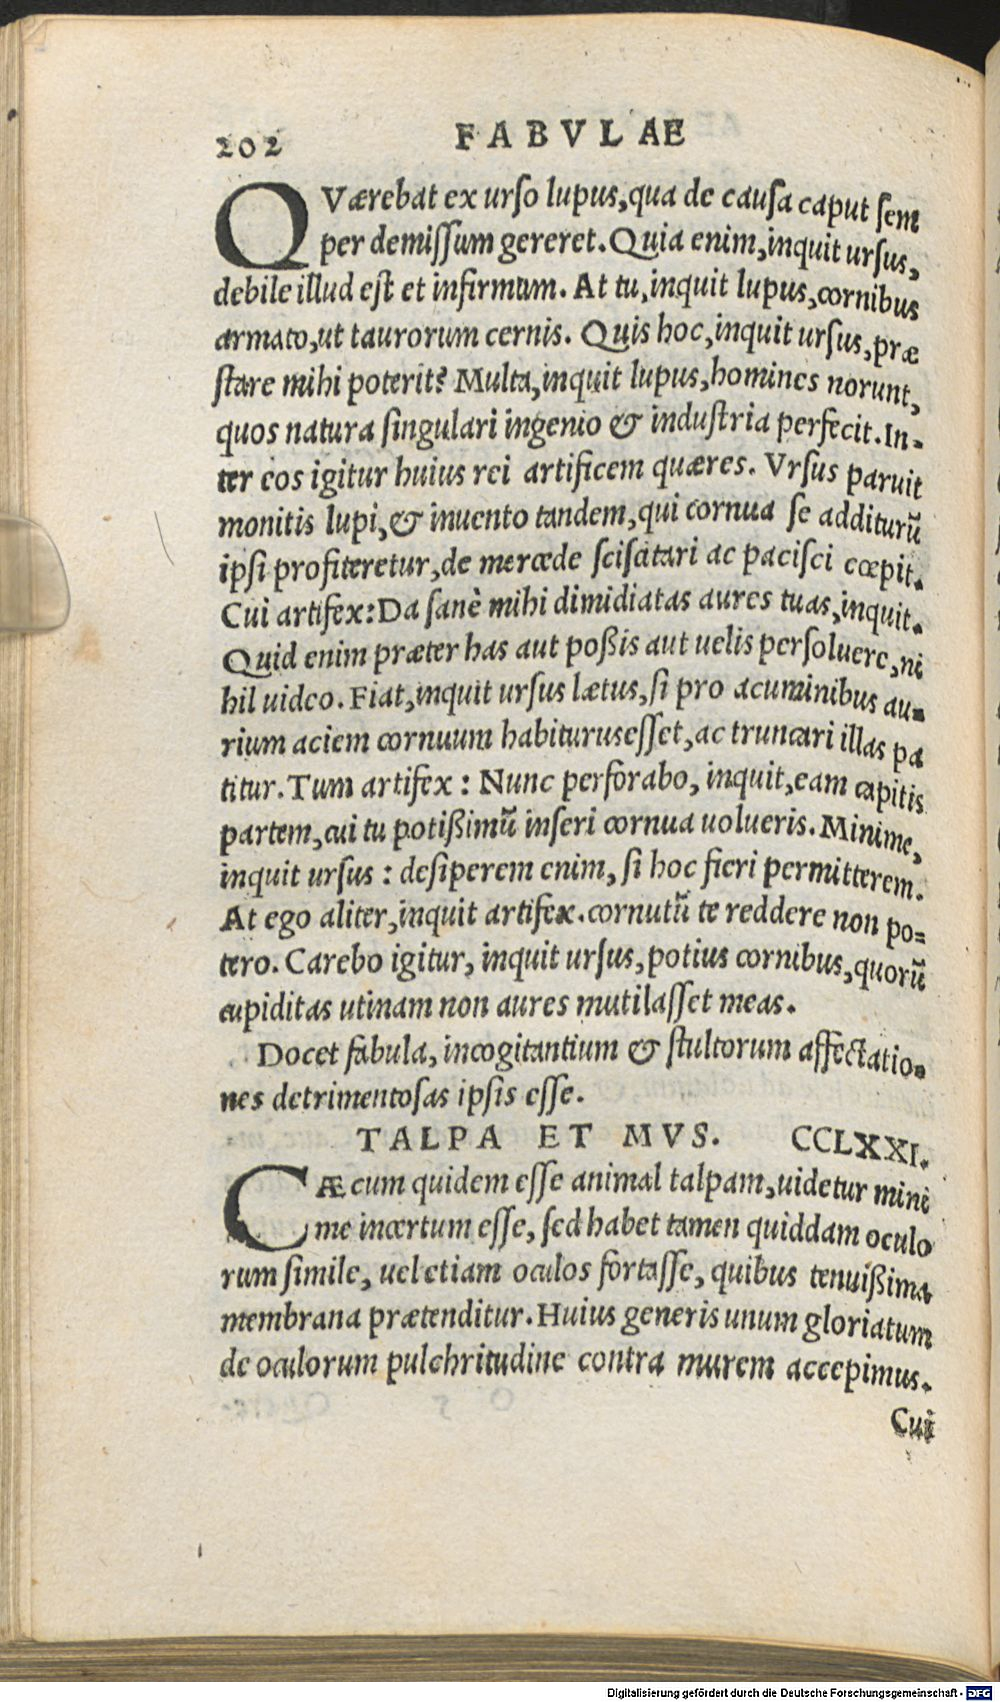 202 FABVLAE
QVærebat ex urſo lupus, qua de cauſa caput ſem
per demiſſum gereret. Quia enim, inquit urſus,
debile illud eſt et infirmum. At tu, inquit lupus, cornibus
armato, ut taurorum cernis. Quis hoc, inquit urſus, præ
ſtare mihi poterit? Multa, inquit lupus, homines norunt,
quos natura ſingulari ingenio & induſtria perfecit. In-
ter eos igitur huius rei artificem quæres. Vrſus paruit
monitis lupi, & inuento tandem, qui cornua ſe additurũ
ipſi profiteretur, de mercede ſciſcitari ac paciſci cœpit.
Cui artifex: Da ſanè mihi dimidiatas aures tuas, inquit.
Quid enim præter has aut poßis aut uelis perſoluere, ni
hil uideo. Fiat, inquit urſus lætus, ſi pro acuminibus au-
rium aciem cornuum habiturus eſſet, ac truncari illas pa
titur. Tum artifex: Nunc perforabo, inquit, eam capitis
partem, cui tu potißimũ inſeri cornua uolueris. Minime,
inquit urſus: deſiperem enim, ſi hoc fieri permitterem.
At ego aliter, inquit artifex. cornutũ te reddere non po=
tero. Carebo igitur, inquit urſus, potius cornibus, quorũ
cupiditas utinam non aures mutilaſſet meas.
Docet fabula, incogitantium & ſtultorum affectatio-
nes detrimentoſas ipſis eſſe.
TALPA ET MVS. CCLXXI.
CÆcum quidem eſſe animal talpam, uidetur mini
me incertum eſſe, ſed habet tamen quiddam oculo
rum ſimile, uel etiam oculos fortaſſe, quibus tenuißima
membrana prætenditur. Huius generis unum gloriatum
de oculorum pulchritudine contra murem accepimus.
Cui
Digitalisierung gefördert durch die Deutsche Forschungsgemeinschaft - DFG